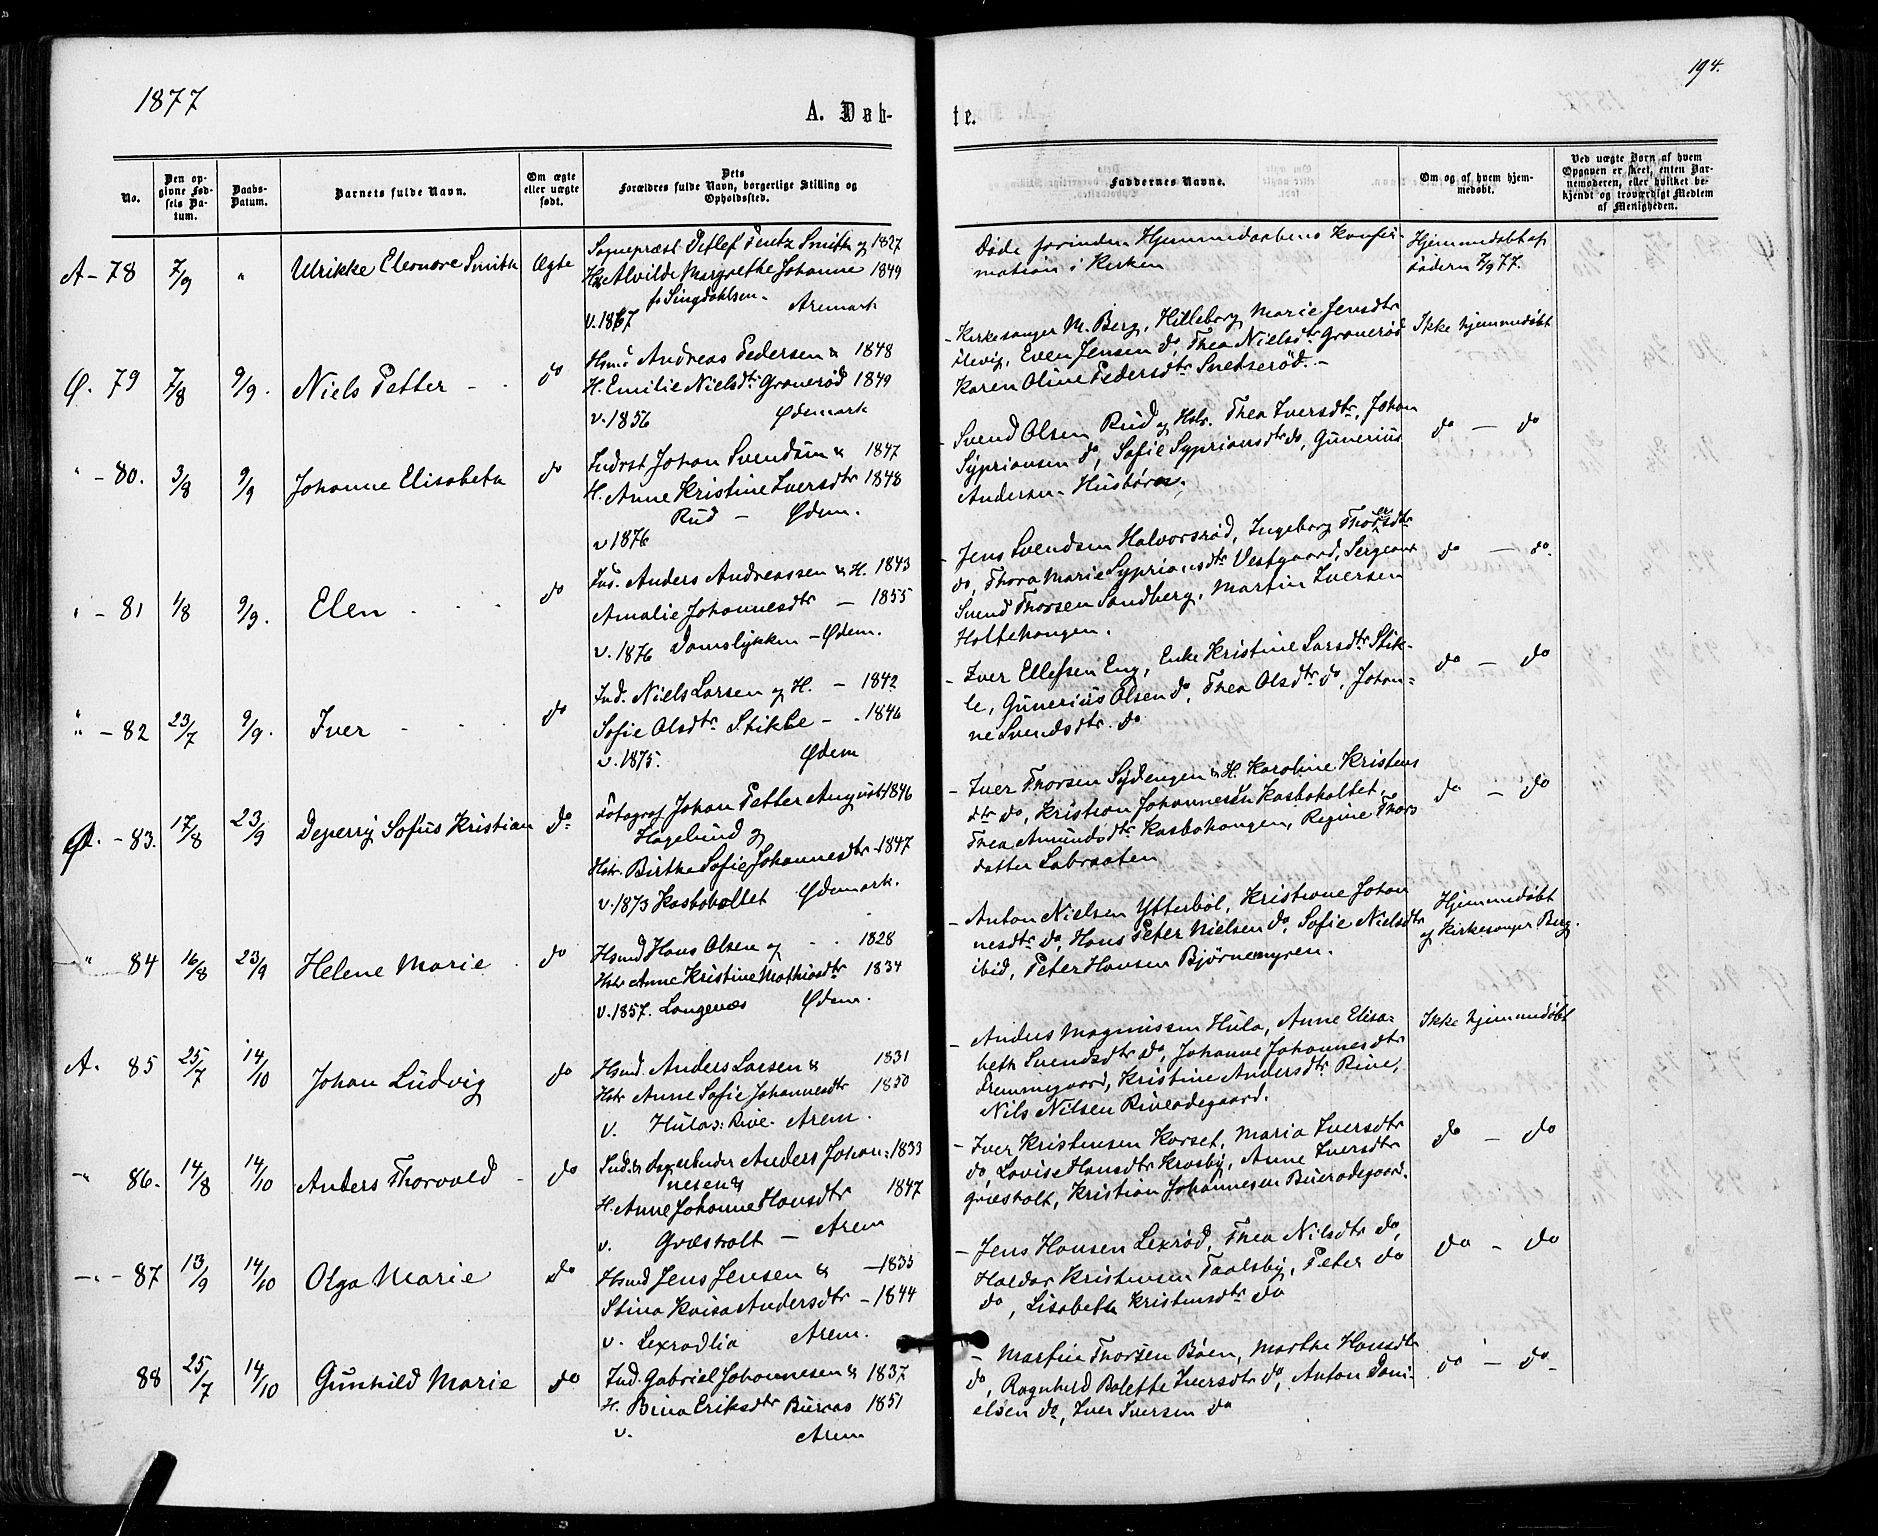 1877
194.
A. Døb-
te.
No.
Den op-
givne Fød-
sels Da-
tum.
Daabs-
Datum.
Barnets fulde Navn.
Om ægte
eller uægte
født.
Dets
Forældres fulde Navn, borgerlige Stilling og
Opholdssted.
Faddernes Navne.
Om og af hvem hjem-
medøbt.
Ved uægte Børn af hvem
Opgaven er skeet, enten Bar-
nemoderen, eller hvilket be-
kjendt og troværdigt Medlem
af Menigheden.
A- 78 7/9 " Ulrikke Eleonore Smith Ægte
Sognepræst Detlef Smith og 1827
Alvilde Margrethe Johanne 1849
f. Singdahlsen.
v. 1867 Aremark
Døde forinden Hjemmedaabens Konfir-
mation i Kirken
Hjemmedøbt af
7/9 77.
Ø. 79 7/8 9/9. Niels Petter - - do
Hsmd Andreas Pedersen & 1848
H. Emilie Nielsdtr Granerød 1849
v. 1856 Ødemark
- Kirkesanger M. Berg, Hilleborg Marie Jensdtr
Ulevig, Even Jensen do, Thea Nielsdtr Granerød
Karen Oline Pedersdtr Snetserød. -
Ikke hjemmedøbt
" - 80. 3/8 9/9 Johanne Elisabeth do
Indrst Johan Svendsen & 1847
H. Anne Kristine Iversdtr 1848
Rud - Ødem.
v 1876
- Svend Olsen Rud og Hstr. Thea Iversdtr, Johan
Syprionsen do, Sofie Syprionsdtr do, Gunerius
Andersen
do - do
" - 81 4/8 9/9. Elen - - - do
Ind. Anders Andreassen & H. 1843
Amalie Johannesdtr - 1855
v. 1876 Damslykken - Ødem.
- Jens Svendsen Halvorsrød, Ingeborg
do, Thora Marie Syprionsdtr Vestgaard, Sergeant
Svend Thorsen Sandberg, Martin Iversen
Holtehangen.
do - do.
" - 82 23/7 9/9. Iver - - do
Ind. Niels Larsen og H. - 1842
Sofie Olsdtr Stikle - - 1846
v. 1875. Ødem
- Iver Ellefsen Eng, Enke Kristine Larsdtr Stik-
le, Gunerius Olsen do, Thea Olsdtr do, Johan-
ne Svendsdtr. do
do - do
Ø. - 83. 17/8 23/9 Deperrij Sofus Kristian do
Fotograf Johan Petter August 1846
Hagelund og
Hstr. Birthe Sofie Johannesdtr - 1847
v. 1873 Kasbokollet Ødemark.
- Iver Thorsen Sydengen & H. Karoline Kristens
dtr do, Kristian Johannesen Kasbokollet,
Thea Amundsdtr Kasbohangen, Regine Thors
datter Labraaten
do - do
" 84 16/8 23/9 Helene Marie - do
Hsmd Hans Olsen og - - 1828
Hstr Anne Kristine Mathisdtr 1834
v. 1857. Langenæs Ødem.
- Anton Nielsen Ytterbøl, Kristiane Johan
nesdtr do, Hans Peter Nielsen do, Sofie Nielsdtr
ibid, Peter Hansen Bjørnemyren.
Hjemmedøbt
af Kirkesanger Berg.
A. 85 25/7 14/10 Johan Ludvig do
Hsmd. Anders Larsen & 1831
Hstr Anne Sofie Johannesdtr 1850
v. Rive. Arem.
- Anders Magnussen Hula, Anne Elisa-
beth Svendsdtr do, Johanne Johannesdtr
Fremmegaard, Kristine Andersdtr Rive,
Nils Nilsen Riveødegaard.
Ikke hjemmedøbt
- " 86. 14/8 14/10 Anders Thorvald - do
Anders Johan- 1833
nesen &
H. Anne Johanne Hansdtr 1847
v. Græsholt - Arem
- Iver Kristensen Korset, Maria Iversdtr
do, Lovise Hansdtr Krosby, Anne Iversdtr
Græsholt, Kristian Johannesen Bueraødegaard.
do - do
- " - 87 13/9 14/10 Olga Marie do
Hsmd Jens Jensen & - 1835
Stina Kaisa Andersdtr - 1844
v. Lexrødlia Arem.
- Jens Hansen Lexrød, Thea Nilsdtr do,
Haldor Kristensen Taalsby, Peter do
do, Lisabeth Kristensdtr do
do - do
88 25/7 14/10 Gunhild Marie do
Ind. Gabriel Johannesen & 1837
H. Bina Eriksdtr Bueraas 1851
v. Arem
- Martin Thorsen Bøen, Marthe Hansdtr
do, Ragnhild Bolette Iversdtr do, Anton Dani-
elsen do, Iver Iversen do
do - do -